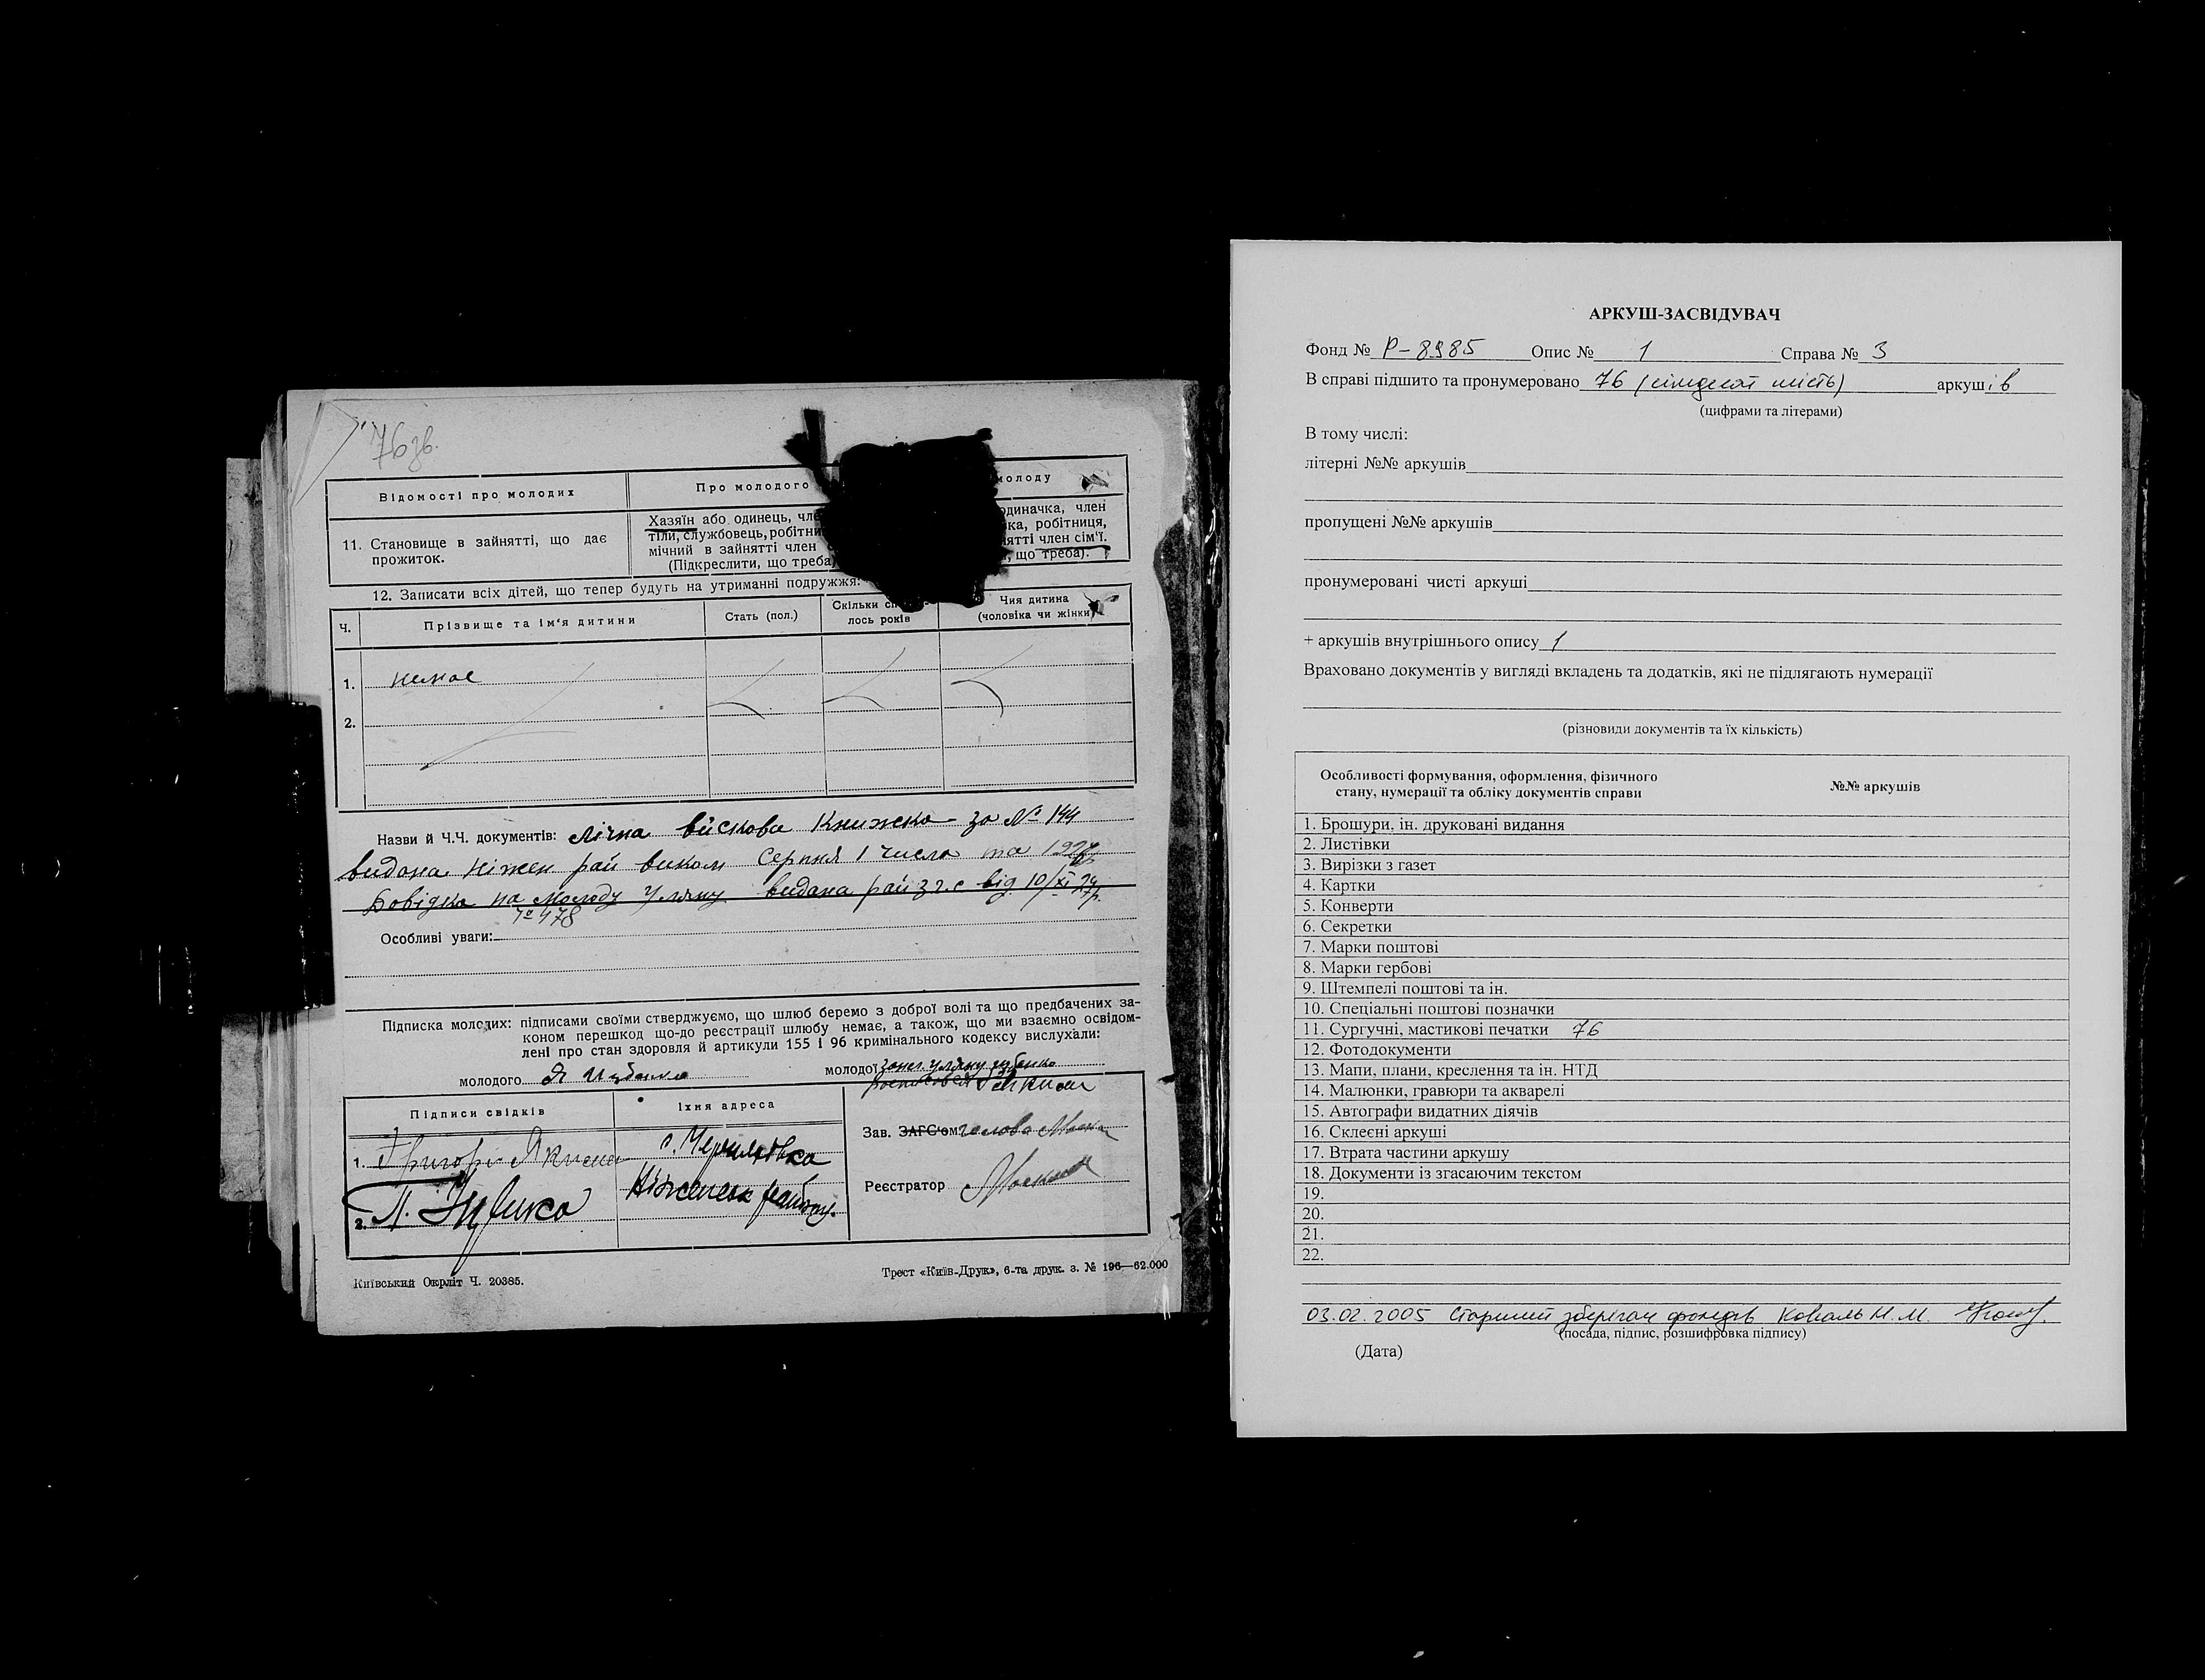 76 зв.
Відомості про молодих
Про молодого
молоду
11. Становище в зайнятті, що дає
прожиток.
Хазяїн або одинець, чле
тіли, службовець, робітни
мічний в зайнятті член
(Підкреслити, що треба)
одиначка, член
ка, робітниця,
нятті член сім'ї.
, що треба).
12. Записати всіх дітей, що тепер будуть на утриманні подружжя:
Ч.
Прізвище та ім'я дитини
Стать (пол.)
Скільки сп
лось років
Чия дитина
(чоловіка чи жінки)
1. немає
2.
Назви й Ч.Ч. документів: Лічна війскова Книжка за № 144
видана Ніжен рай виком Серпня 1 числа та 192
Довідка на молоду Уляну видана рай з.г.с від 10/XI
№ 478
Особливі уваги:
Підписка молодих: підписами своїми стверджуємо, що шлюб беремо з доброї волі та що предбачених за-
коном перешкод що-до реєстрації шлюбу немає, а також, що ми взаємно освідом-
лені про стан здоровля й артикули 155 і 96 кримінального кодексу вислухали:
молодого
молодої
Підписи свідків
Їхня адреса
1. Григорі
2.
Ніженськ району.
Зав. ЗАГС'ом голова
Реєстратор
Київський Окрліт Ч. 20385.
Трест «Київ-Друк», 6-та друк. з. № 196—62.000
АРКУШ-ЗАСВІДУВАЧ
Фонд № Р-8985 Опис № 1 Справа № 3
В справі підшито та пронумеровано 76 (сімдесят шість) аркушів
(цифрами та літерами)
В тому числі:
літерні №№ аркушів
пропущені №№ аркушів
пронумеровані чисті аркуші
+ аркушів внутрішнього опису 1
Враховано документів у вигляді вкладень та додатків, які не підлягають нумерації
(різновиди документів та їх кількість)
Особливості формування, оформлення, фізичного
стану, нумерації та обліку документів справи
№№ аркушів
1. Брошури, ін. друковані видання
2. Листівки
3. Вирізки з газет
4. Картки
5. Конверти
6. Секретки
7. Марки поштові
8. Марки гербові
9. Штемпелі поштові та ін.
10. Спеціальні поштові позначки
11. Сургучні, мастикові печатки 76
12. Фотодокументи
13. Мапи, плани, креслення та ін. НТД
14. Малюнки, гравюри та акварелі
15. Автографи видатних діячів
16. Склеєні аркуші
17. Втрата частини аркушу
18. Документи із згасаючим текстом
19.
20.
21.
22.
03.02.2005 Старший зберігач фондів Коваль Н.М.
(посада, підпис, розшифровка підпису)
(Дата)